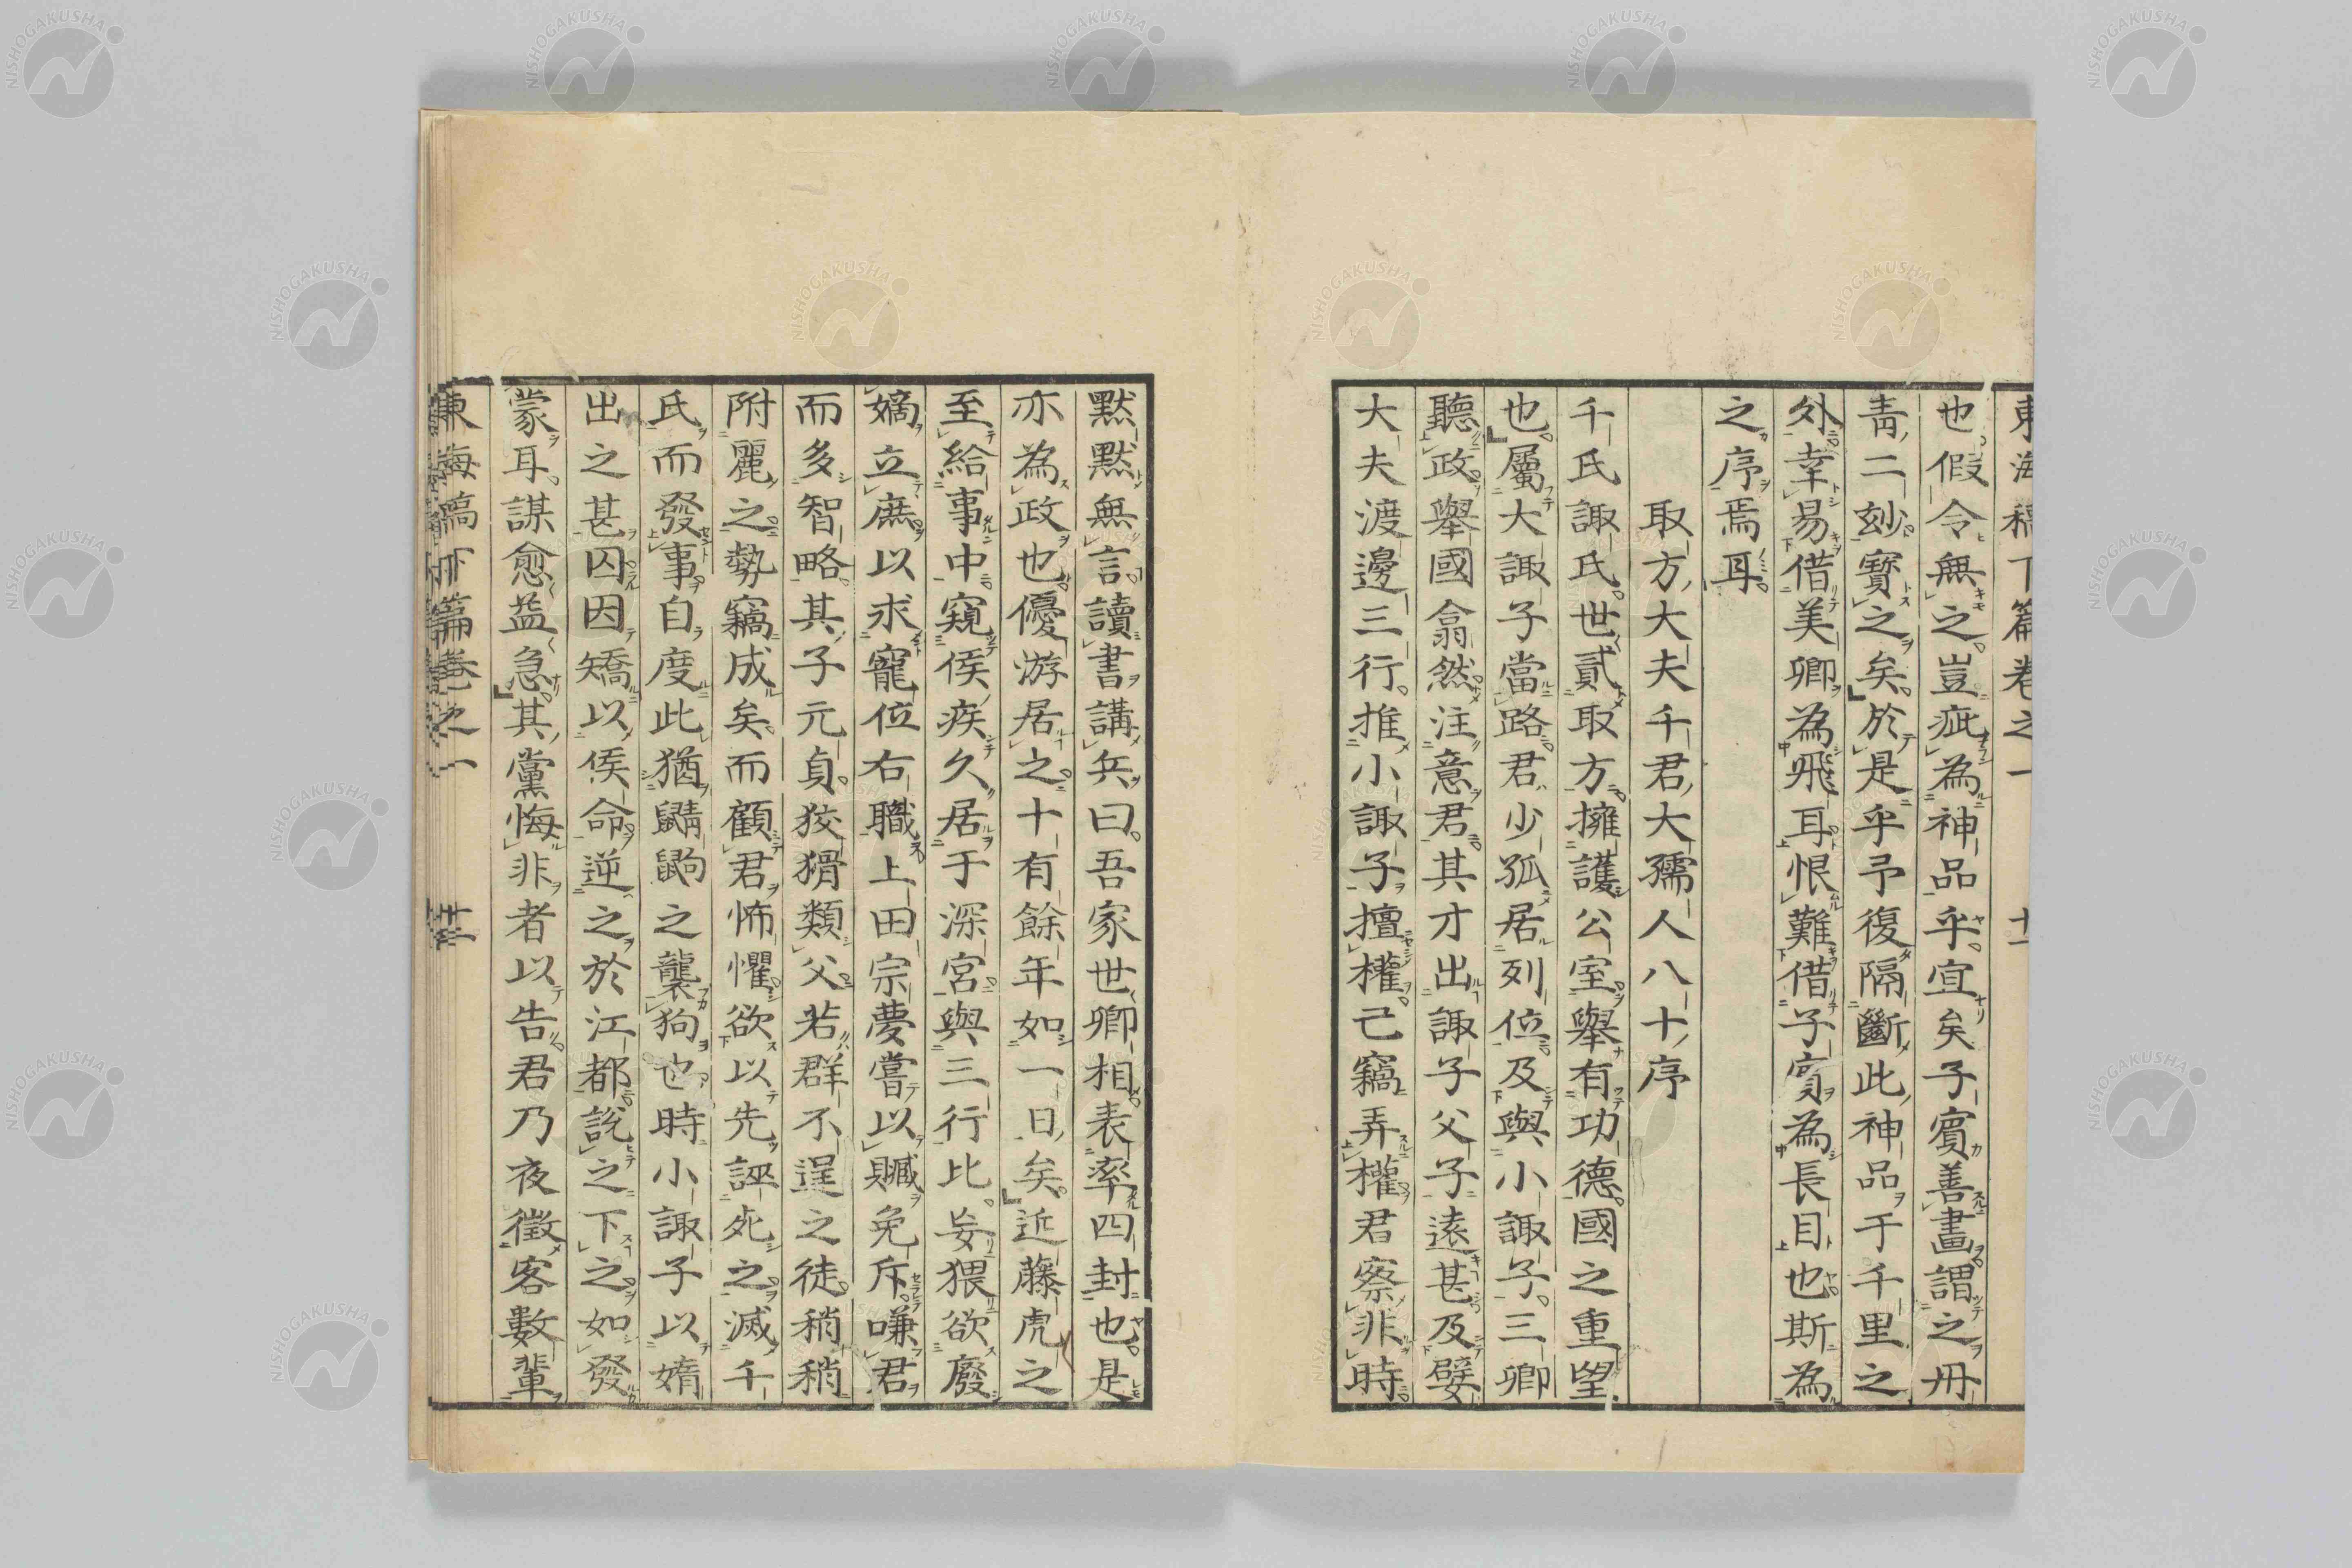 東海稿下篇巻之一 十一
也假令無之豈疵為神品乎宜矣子賓善畫謂之丹
青二玅寶之矣於是乎予復隔斷此神品于千里之
外幸易借美卿為飛耳恨難借子賓為長目也斯為
之序焉耳
取方大夫千君大孺人八十序
千氏諏氏世貳取方擁護公室舉有功德國之重望
也屬大諏子當路君少孤居列位及與小諏子三卿
聽政舉國翕然注意君其才出諏子父子遠甚及嬖
大夫渡邊三行推小諏子擅權己竊弄權君察非時
默默無言讀書講兵曰吾家世卿相表率四封也是
亦為政也優游居之十有餘年如一日矣近藤虎之
至給事中窺侯疾久居于深宮與三行比妄猥欲廢
嫡立庶以求寵位右職上田宗夢嘗以贓免斥嗛君
而多智略其子元貞狡猾類父若群不逞之徒稍稍
附麗之勢竊成矣而顧君怖懼欲以先誣死之滅千
氏而發事自度此猶鼱鼩之襲狗也時小諏子以媠
出之甚囚因矯以侯命逆之於江都說之下之如發
蒙耳謀愈益急其黨悔非者以告君乃夜徵客數輩
東海稿下篇巻之一
NISHOGAKUSHA